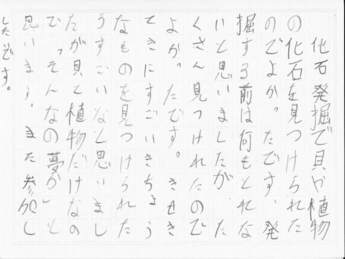 化石発掘で貝や植物
の化石を見つけられた
のでよかったです。発
掘する前は何もとれな
いと思いましたが、た
くさん見つけれたので
よかったです。きせき
てきにすごいきちょう
なものを見つけられた
らすごいなと思いまし
たが貝と植物だけなの
で
思います。また参加し
たいです。